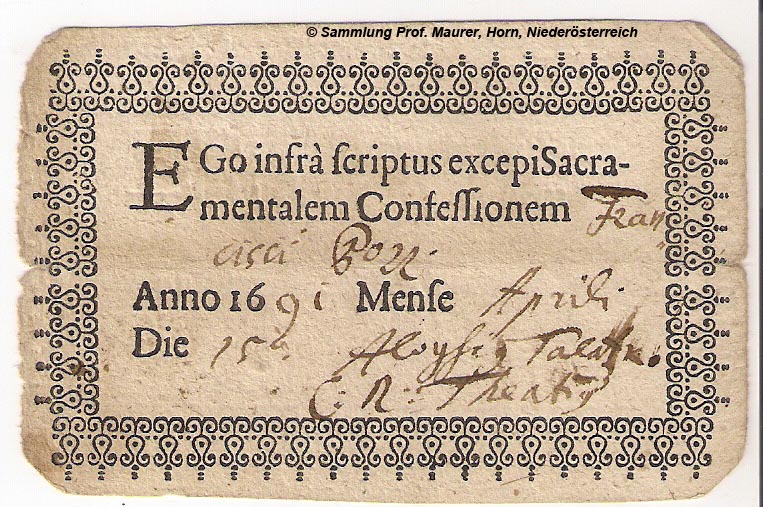 © Sammlung Prof. Maurer, Horn, Niederösterreich
EGo infrà ſcriptus excepiSacra-
mentalem Confeſſionem Fran
ciſci
Anno 1691 Menſe Aprili
Die 15
C. R.